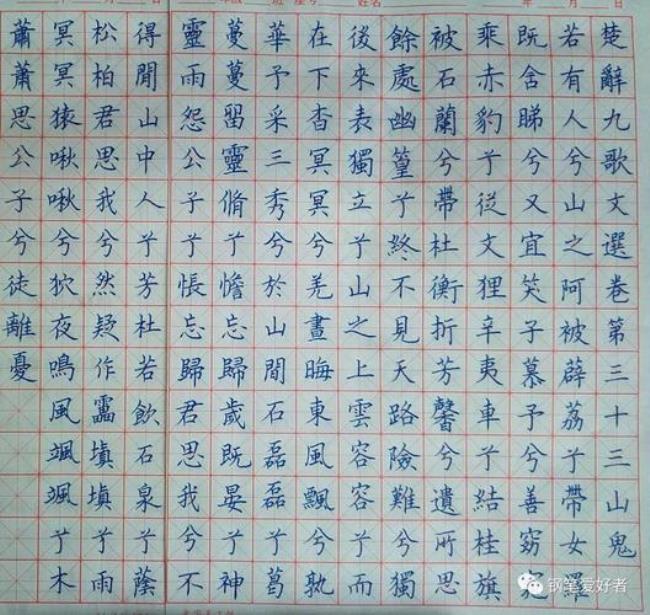 姓名 年 月 日
楚辭九歌文選卷第三十三山鬼
若有人兮山之阿被薜荔兮帶女蘿
既含睇兮又宜笑子慕予兮善窈窕
乘赤豹兮從文狸辛夷車兮結桂旗
被石蘭兮帶杜衡折芳馨兮遺所思
餘處幽篁兮終不見天路險難兮獨
後來表獨立兮山之上雲容容兮而
在下杳冥冥兮羌晝晦東風飄兮孰
華予采三秀兮於山間石磊磊兮葛
蔓蔓留靈脩兮憺忘歸歲既晏兮神
靈雨怨公子兮悵忘歸君思我兮不
得閒山中人兮芳杜若飲石泉兮蔭
松柏君思我兮然疑作靁填填兮雨
冥冥猿啾啾兮狖夜鳴風颯颯兮木
蕭蕭思公子兮徒離憂
钢笔爱好者